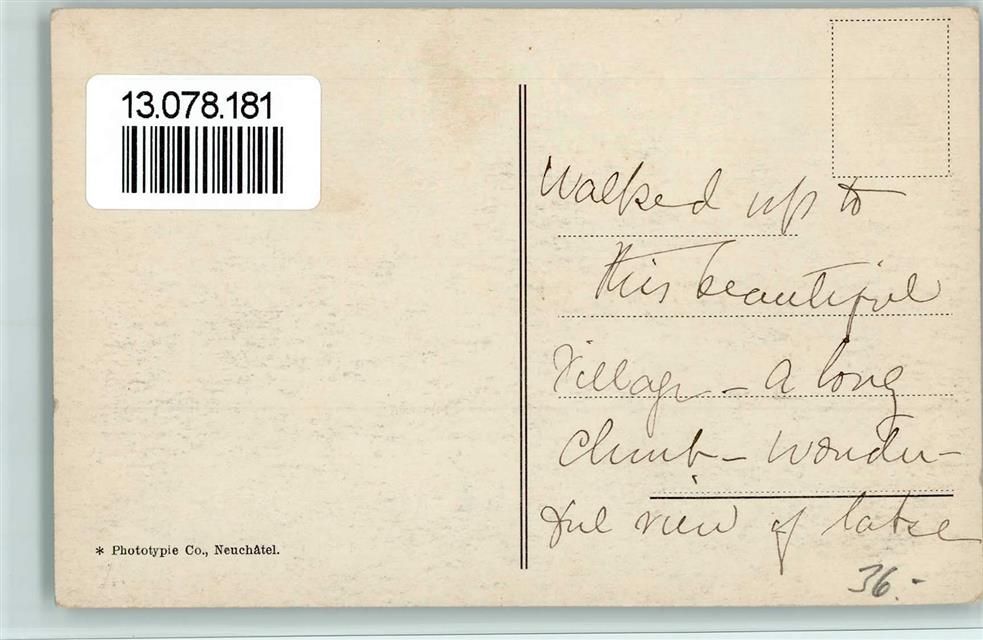 13.078.181
Walked up to
this beautiful
Village - A long
Climb - Wonder-
ful view of lake
36.-
* Phototypie Co., Neuchâtel.